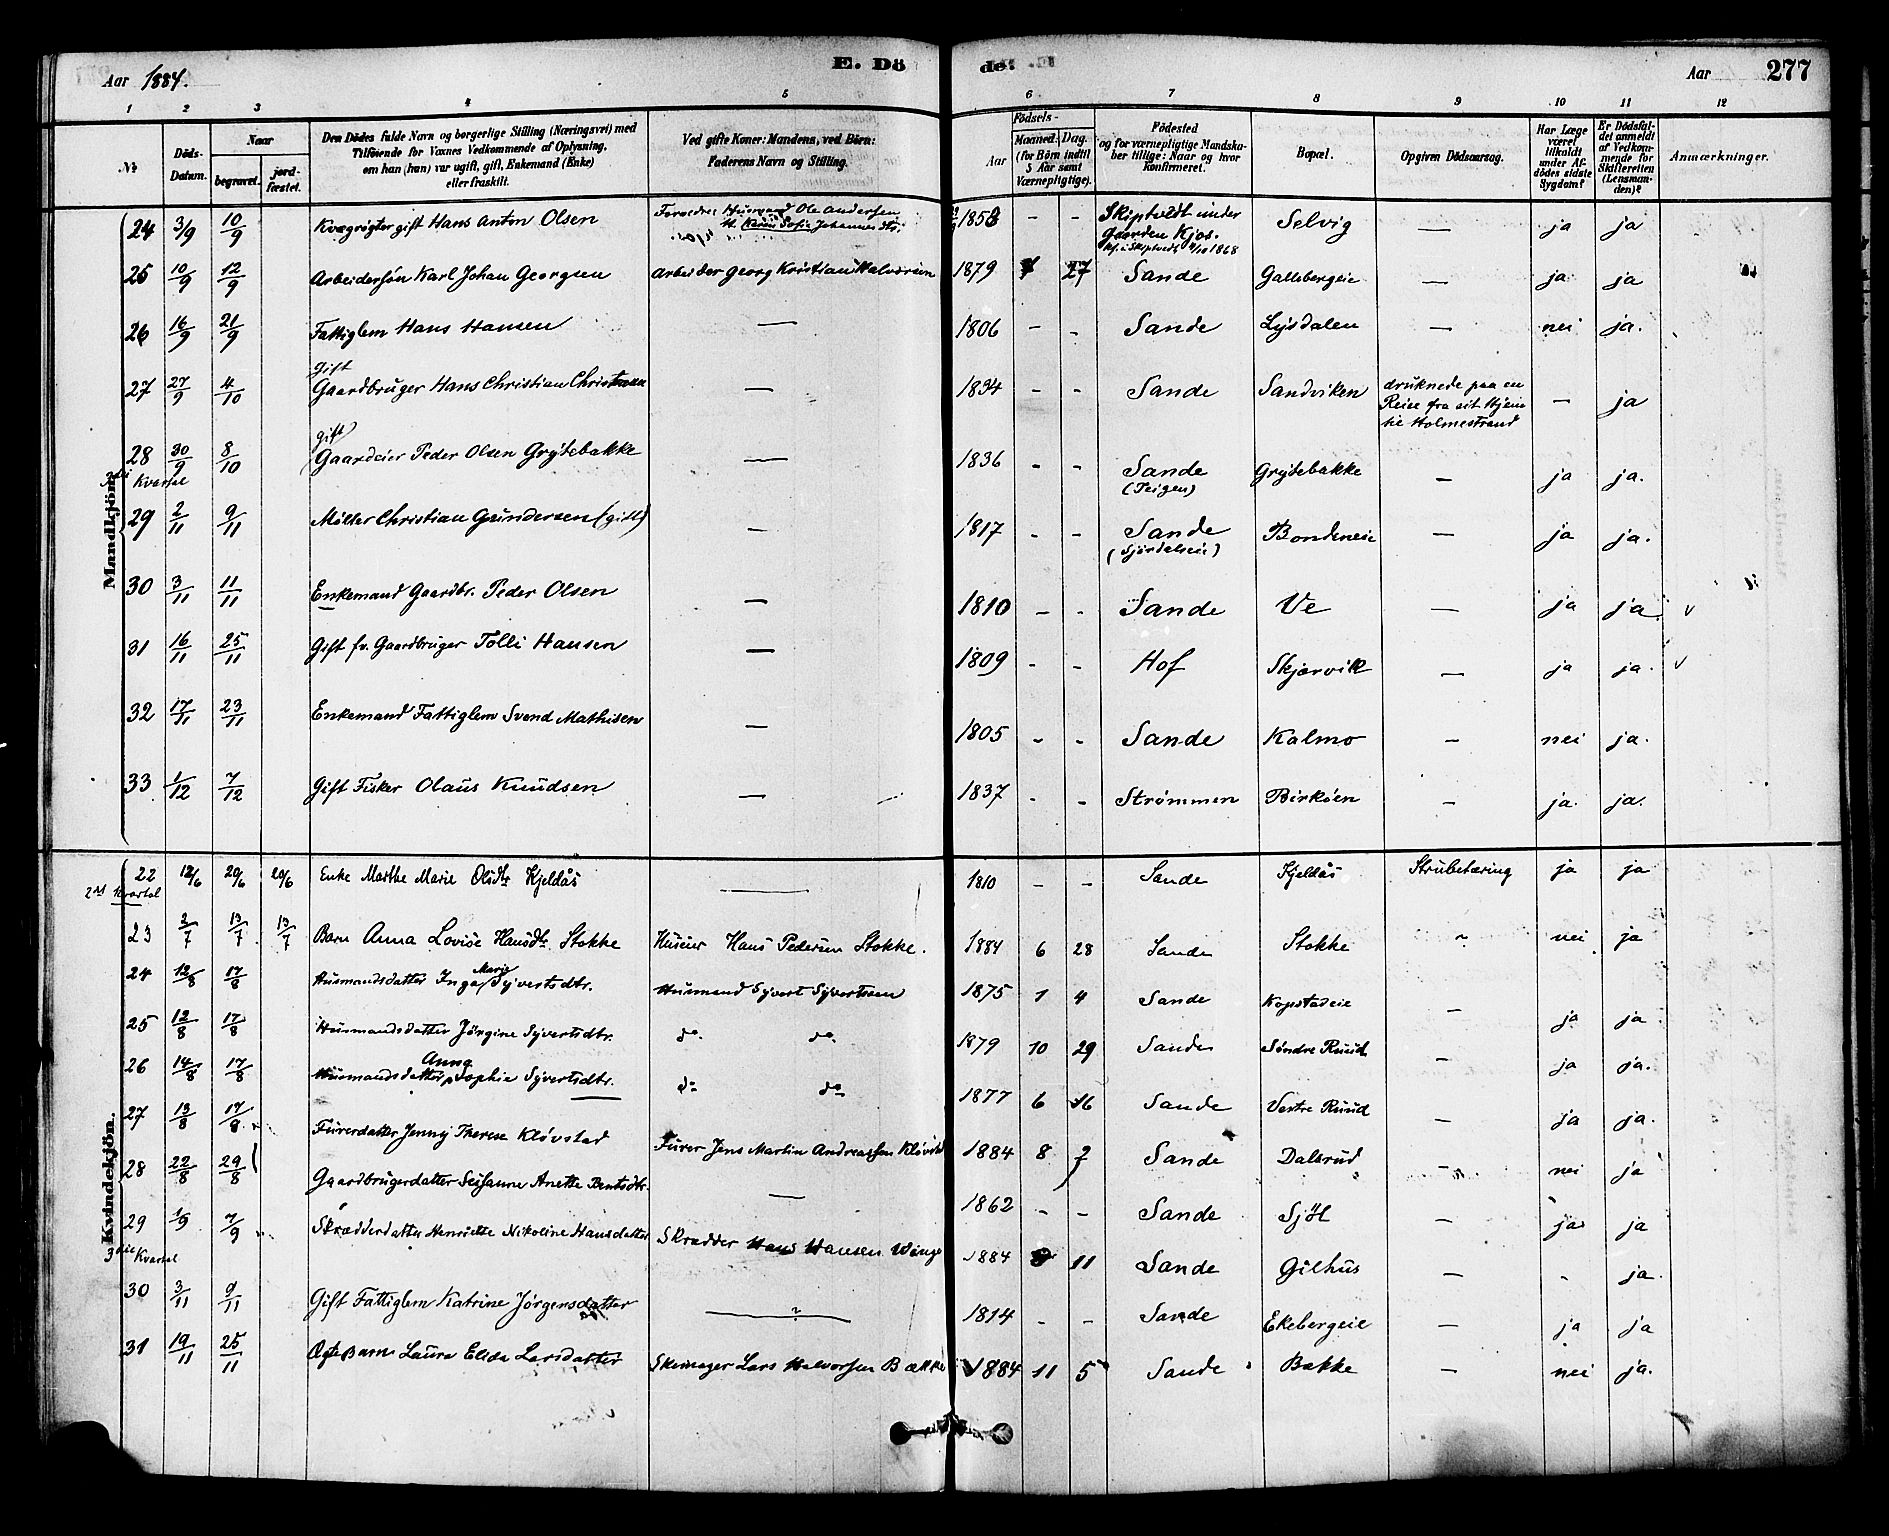 Aar 1884. E. Dö de. Aar 277
1 2 3 4 5 6 7 8 9 10 11 12
№ Döds-Datum. Naar begravet. jordfæstet. Den Dödes fulde Navn og borgerlige Stilling (Næringsvei) med Tilföiende for Voxnes Vedkommende af Oplysning, om han (hun) var ugift, gift, Enkemand (Enke) eller fraskilt. Ved gifte Koner: Mandens, ved Børn: Faderens Navn og Stilling. Födsels- Aar Maaned. Dag. (for Börn indtil 5 Aar samt Værnepligtige). Födested og for værnepligtige Mandskaber tillige: Naar og hvor konfirmeret. Bopæl. Opgiven Dödsaarsag. Har Læge været tilkaldt under Afdödes sidste Sygdom? Er Dödsfaldet anmeldt af Vedkommende for Skifteretten (Lensmanden)? Anmærkninger.
Mandkjön.
24 3/9 10/9 Kvægrøgter gift Hans Anton Olsen Forældre Husmand Ole Andersen 1853 - - Skiptvedt under Gaarden Kjos. Selvig — ja ja
25 10/9 12/9 Arbeidersøn Karl Johan Georgsen Arbeider Georg Kristian Halvorsen 1879 27 Sande Gallebergeie — ja ja
26 16/9 21/9 Fattiglem Hans Hansen — 1806 - - Sande Lysdalen — nei ja.
27 27/9 4/10 gift Gaardbruger Hans Christian Christensen — 1834 - - Sande Sandviken druknede paa en Reise fra sit Hjem til Holmestrand — ja
28 30/9 8/10 gift Gaardeier Peder Olsen Grytebakke — 1836 - - Sande (Teigen) Grytebakke — ja ja.
Kvartal
29 2/11 9/11 Møller Christian Gundersen (gift) — 1817 - - Sande Bondeneie — ja ja.
30 3/11 11/11 Enkemand Gaardbr. Peder Olsen — 1810 - - Sande Ve — ja ja. v
31 16/11 25/11 Gift fv. Gaardbruger Tolli Hansen — 1809 - - Hof Skjærvik — ja ja. v
32 17/11 23/11 Enkemand Fattiglem Svend Mathisen — 1805 - - Sande Kalmo — nei ja.
33 1/12 7/12 Gift Fisker Olaus Knudsen — 1837 - - Strømmen Birköen — ja. ja.
Kvindekjön.
22 12/6 20/6 20/6 Enke Marthe Marie Olsdtr Kjeldås — 1810 - - Sande Kjeldås Strubetæring ja ja
2det Kvartal
23 2/7 13/7 13/7 Barn Anna Lovise Hansdtr. Stokke Huseier Hans Pedersen Stokke. 1884 6 28 Sande Stokke nei ja
24 12/8 17/8 Husmandsdatter Inga Marie Syvertsdtr. Husmand Syvert Syvertssen 1875 1 4 Sande Kopstadeie — ja ja.
25 12/8 17/8 Husmandsdatter Jørgine Syvertsdtr. do. do. 1879 10 29 Sande Søndre Ruud — ja ja.
26 14/8 17/8 Husmandsdatter Anna Sophie Syvertsdtr. do do 1877 6 16 Sande Vestre Ruud — ja ja.
27 13/8 17/8 Furerdatter Jenny Therese Kløvstad Furer Jens Martin Andreassen Kløvstd 1884 8 7 Sande Dalsrud — nei ja
28 22/8 29/8 Gaardbrugerdatter Susanne Anette Berntsdtr. — 1862 - - Sande Sjøl — ja ja
29 1/9 7/9 Skrædderdatter Henriette Nikoline Hansdatter Skrædder Hans Hansen 1884 11 Sande Gilhus — - ja.
3die Kvartal
30 3/11 9/11 Gift Fattiglem Katrine Jørgensdatter — ? 1814 - - Sande Ekebergeie — ja ja
31 19/11 25/11 Ægte Barn Laura Elida Larsdatter Skomager Lars Halvorsen Bakke 1884 11 5 Sande Bakke — nei ja.